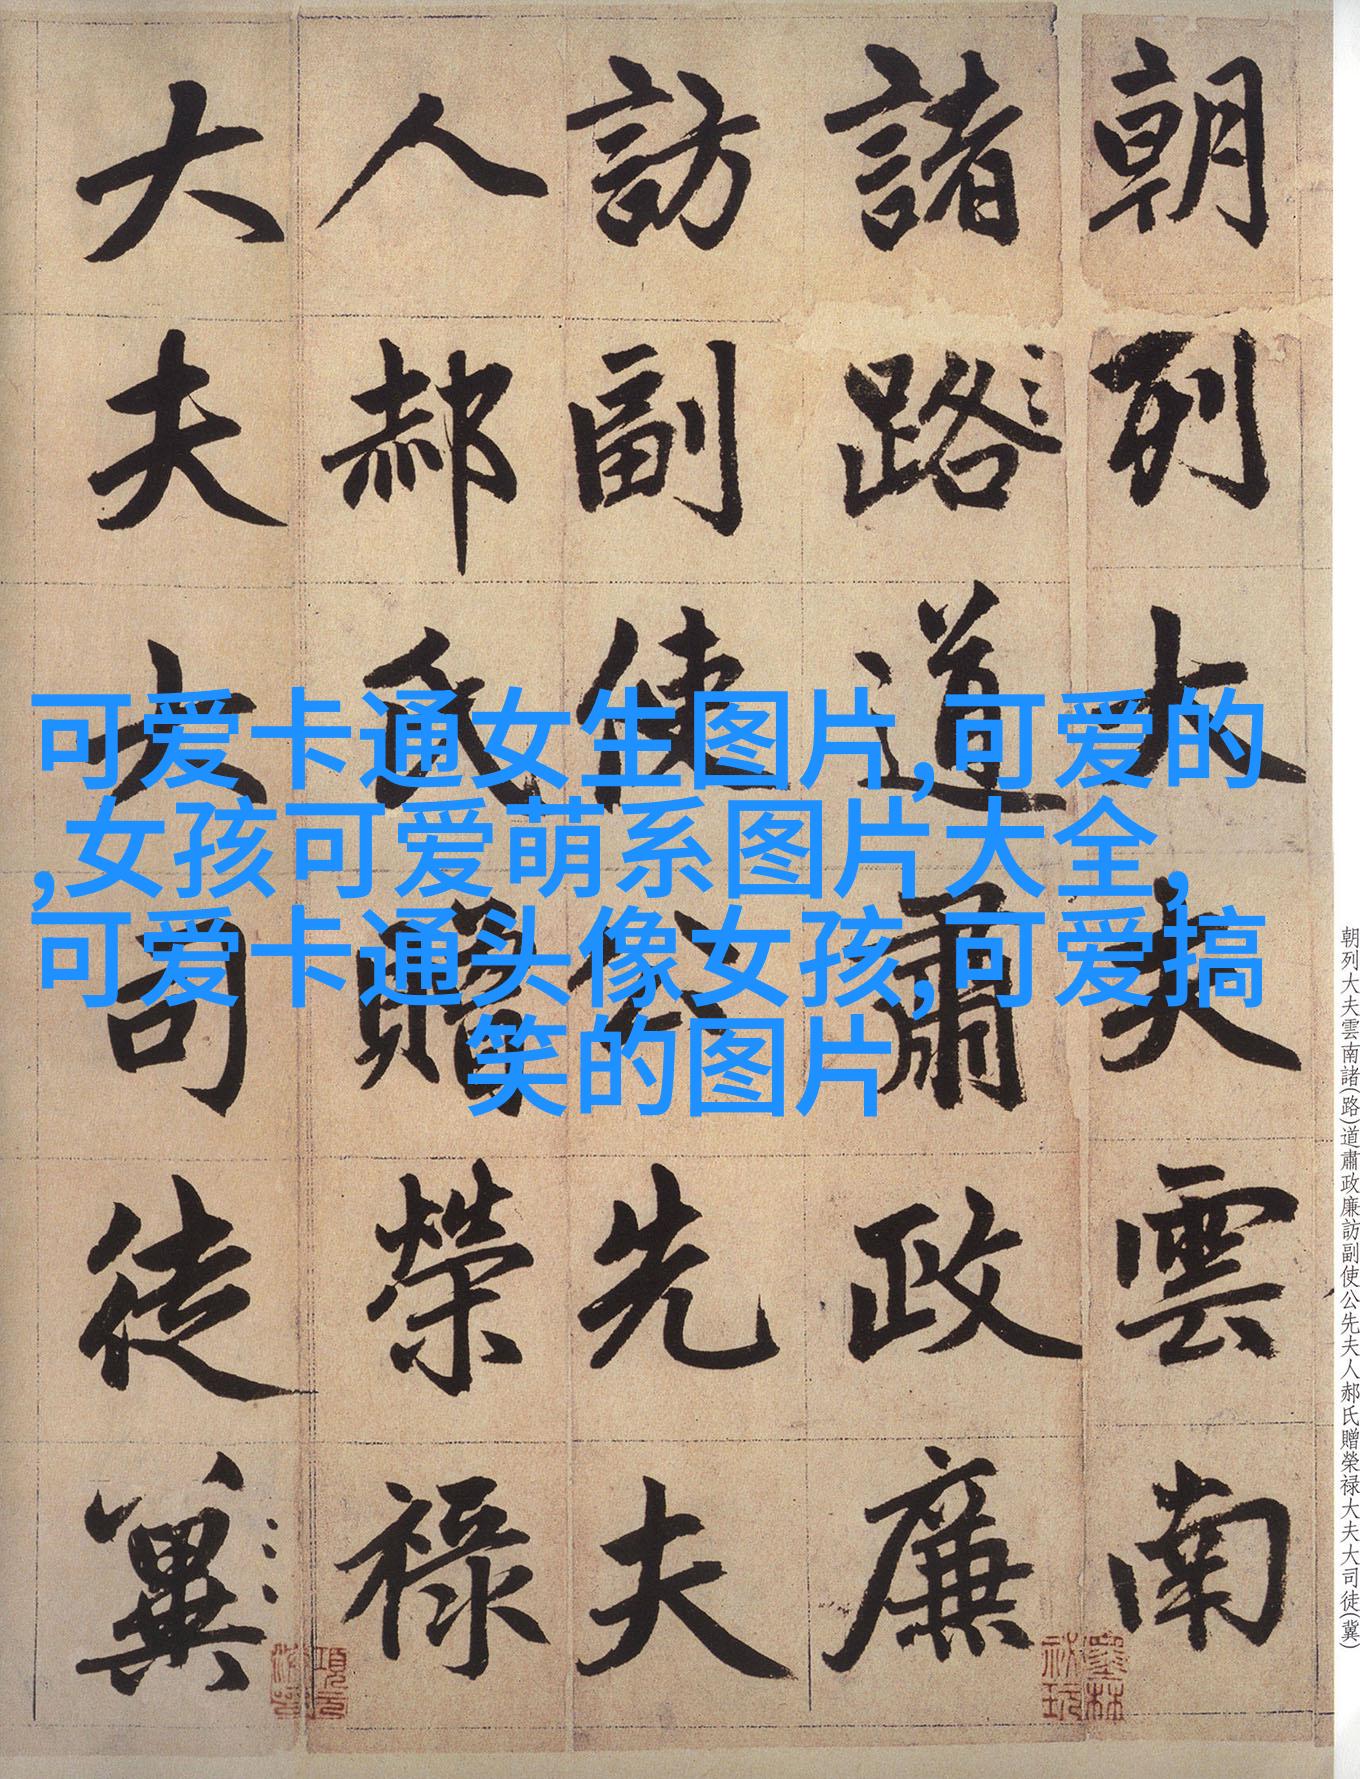 朝列大夫雲南
諸路道肅政廉
訪副使公先夫
人郝氏贈榮禄
大夫大司徒冀
可爱卡通女生图片,可爱的
,女孩可爱萌系图片大全,
可爱卡通头像女孩,可爱搞
笑的图片
朝列大夫雲南諸(路)道肅政廉訪副使公先夫人郝氏贈榮禄大夫大司徒(冀)